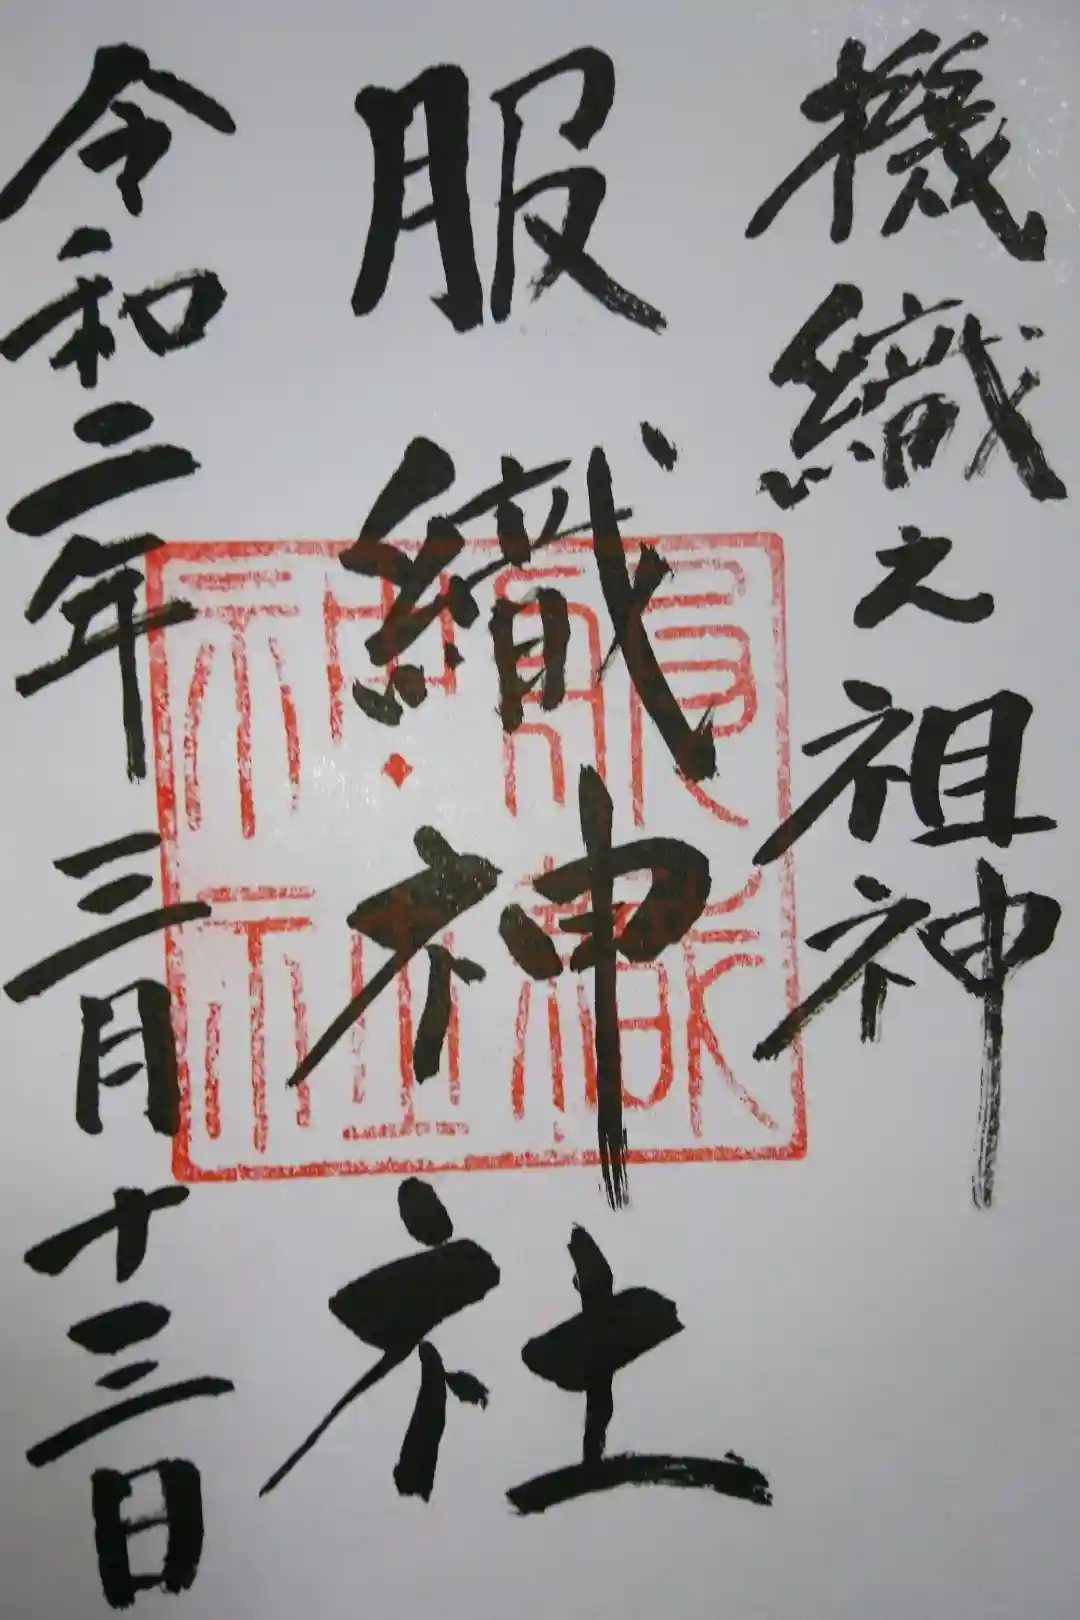 機織之祖神
服織神社
令和二年三月十三日